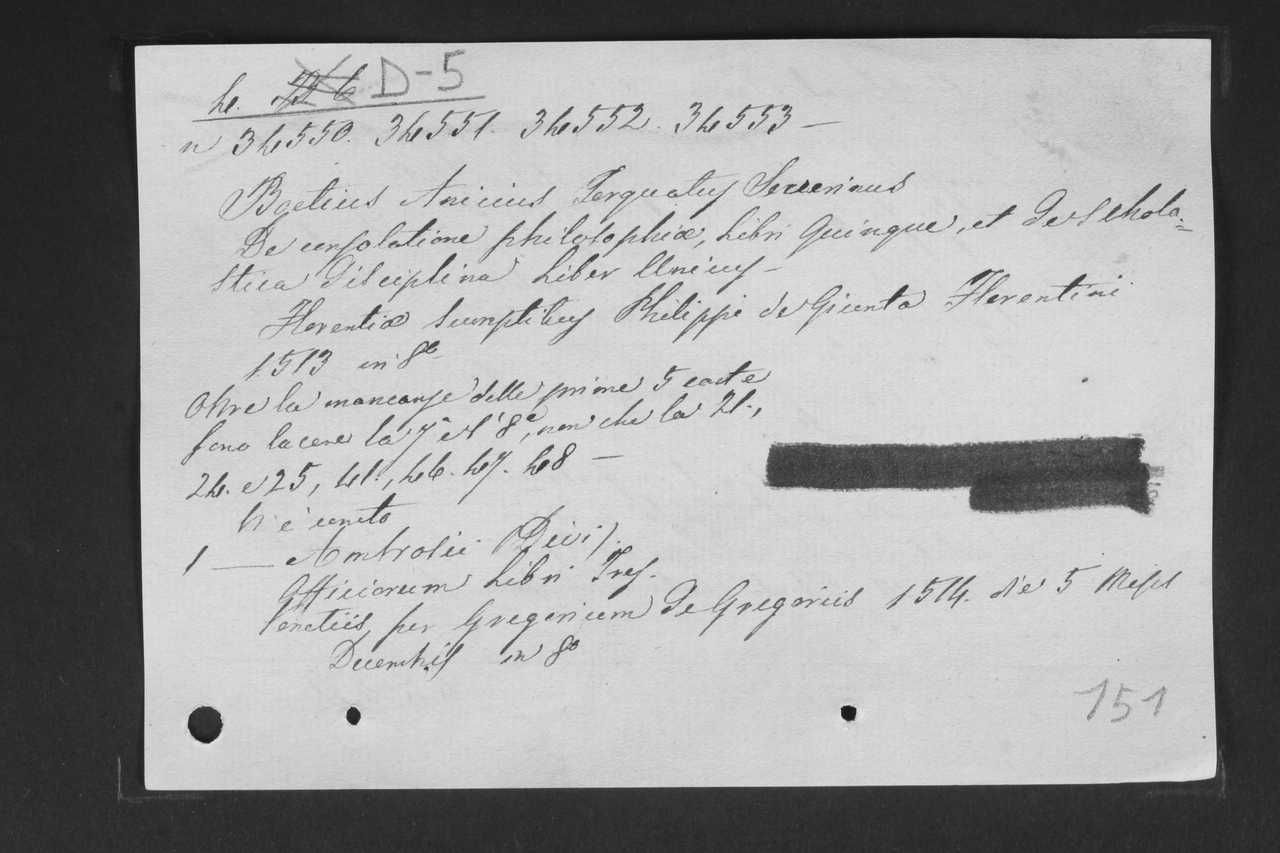 4. D-5
n 34550. 34551. 34552. 34553 —
Boetius Anicius Torquatus Severinus
De consolatione philosophiæ, Libri Quinque, et De Schola=
stica Disciplina Liber Unicus —
Florentiæ Sumptibus Philippi de Giunta Florentini
1513 in 8°
Oltre la mancanze delle prime 5 carte
sono lacere la 7ª e l'8ª, non che la 21.,
24. e 25, 41., 46. 47. 48 —
Vi è unito
1 — Ambrosii (Divi).
Officiorum Libri Tres.
Venetiis, per Gregorium de Gregoriis 1514. die 5 Mensis
Decembris in 8°
151